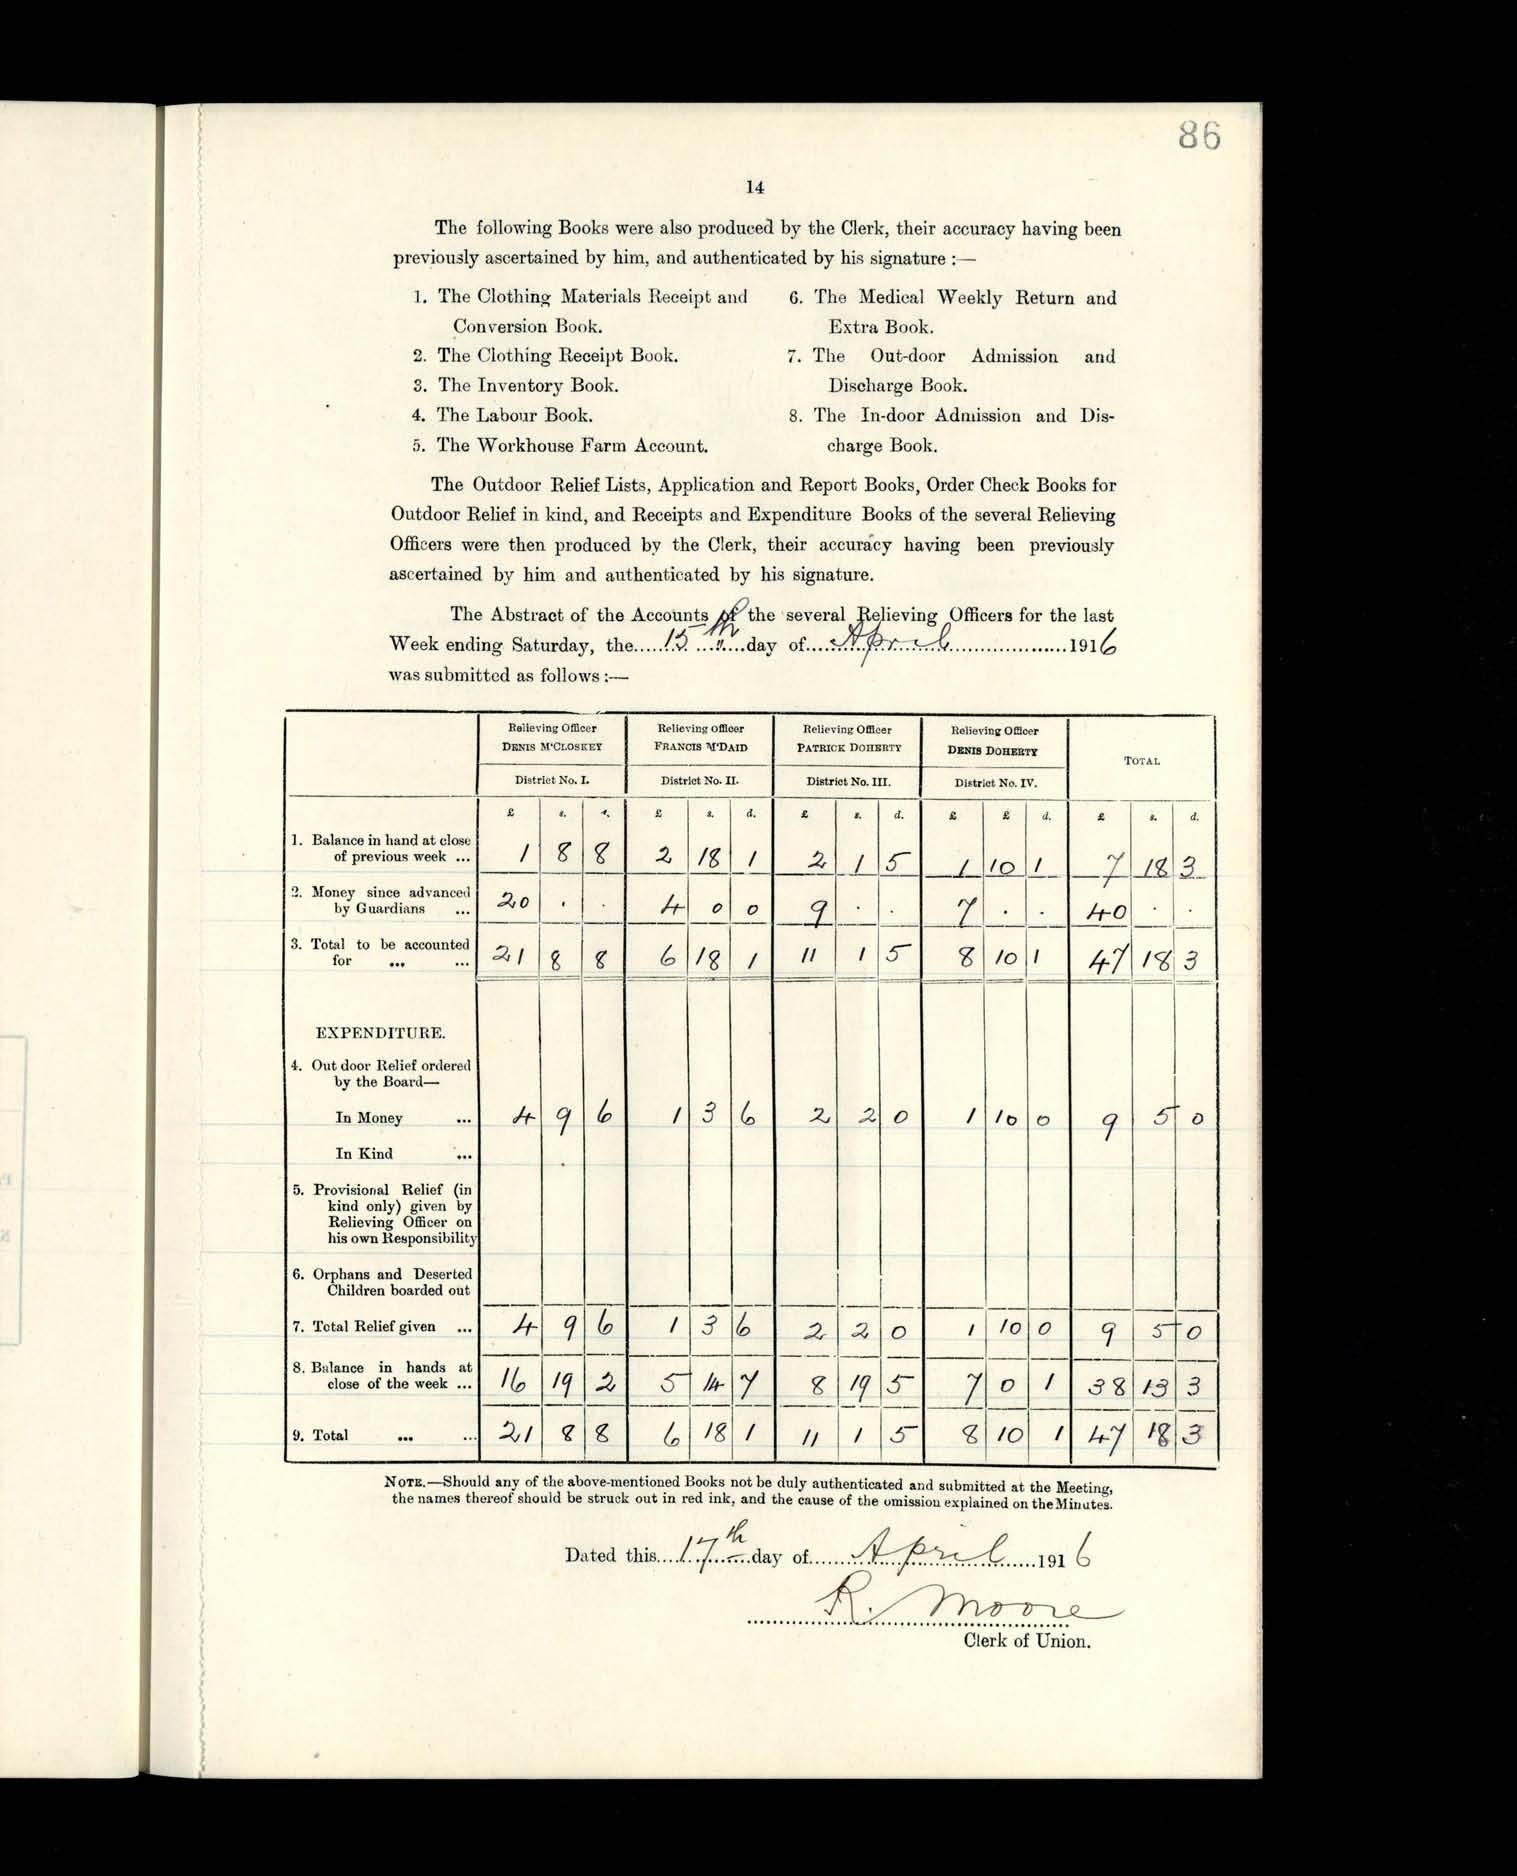 86
14
The following Books were also produced by the Clerk, their accuracy having been
previously ascertained by him, and authenticated by his signature :—
1. The Clothing Materials Receipt and
Conversion Book.
2. The Clothing Receipt Book.
3. The Inventory Book.
4. The Labour Book.
5. The Workhouse Farm Account.
6. The Medical Weekly Return and
Extra Book.
7. The Out-door Admission and
Discharge Book.
8. The In-door Admission and Dis-
charge Book.
The Outdoor Relief Lists, Application and Report Books, Order Check Books for
Outdoor Relief in kind, and Receipts and Expenditure Books of the several Relieving
Officers were then produced by the Clerk, their accuracy having been previously
ascertained by him and authenticated by his signature.
The Abstract of the Accounts of the several Relieving Officers for the last
Week ending Saturday, the 15th day of April 1916
was submitted as follows :—
Relieving Officer Relieving Officer Relieving Officer Relieving Officer
DENIS M'CLOSKEY FRANCIS M'DAID PATRICK DOHERTY DENIS DOHERTY TOTAL
District No. I. District No. II. District No. III. District No. IV.
£ s. d. £ s. d. £ s. d. £ £ d. £ s. d.
1. Balance in hand at close
of previous week ... 1 8 8 2 18 1 2 1 5 1 10 1 7 18 3
2. Money since advanced
by Guardians ... 20 . . 4 0 0 9 . . 7 . . 40 . .
3. Total to be accounted
for ... ... 21 8 8 6 18 1 11 1 5 8 10 1 47 18 3
EXPENDITURE.
4. Out door Relief ordered
by the Board—
In Money ... 4 9 6 1 3 6 2 2 0 1 10 0 9 5 0
In Kind ...
5. Provisional Relief (in
kind only) given by
Relieving Officer on
his own Responsibility
6. Orphans and Deserted
Children boarded out
7. Total Relief given ... 4 9 6 1 3 6 2 2 0 1 10 0 9 5 0
8. Balance in hands at
close of the week ... 16 19 2 5 14 7 8 19 5 7 0 1 38 13 3
9. Total ... ... 21 8 8 6 18 1 11 1 5 8 10 1 47 18 3
NOTE.—Should any of the above-mentioned Books not be duly authenticated and submitted at the Meeting,
the names thereof should be struck out in red ink, and the cause of the omission explained on the Minutes.
Dated this 17th day of April 1916
R. Moore
Clerk of Union.